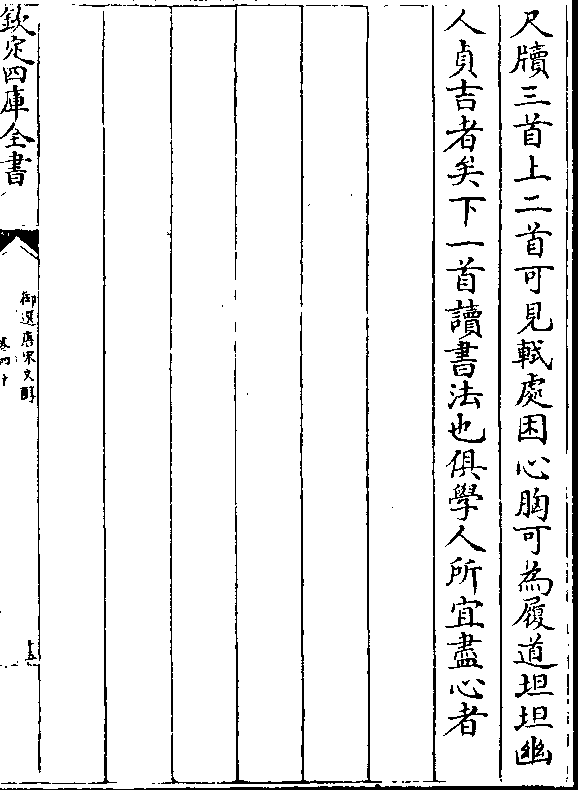 尺牘三首上二首可見軾處困心胸可為履道坦坦幽
人貞吉者矣下一首讀書法也俱學人所宜盡心者
欽定四庫全書
御選唐宋文醇
卷四十